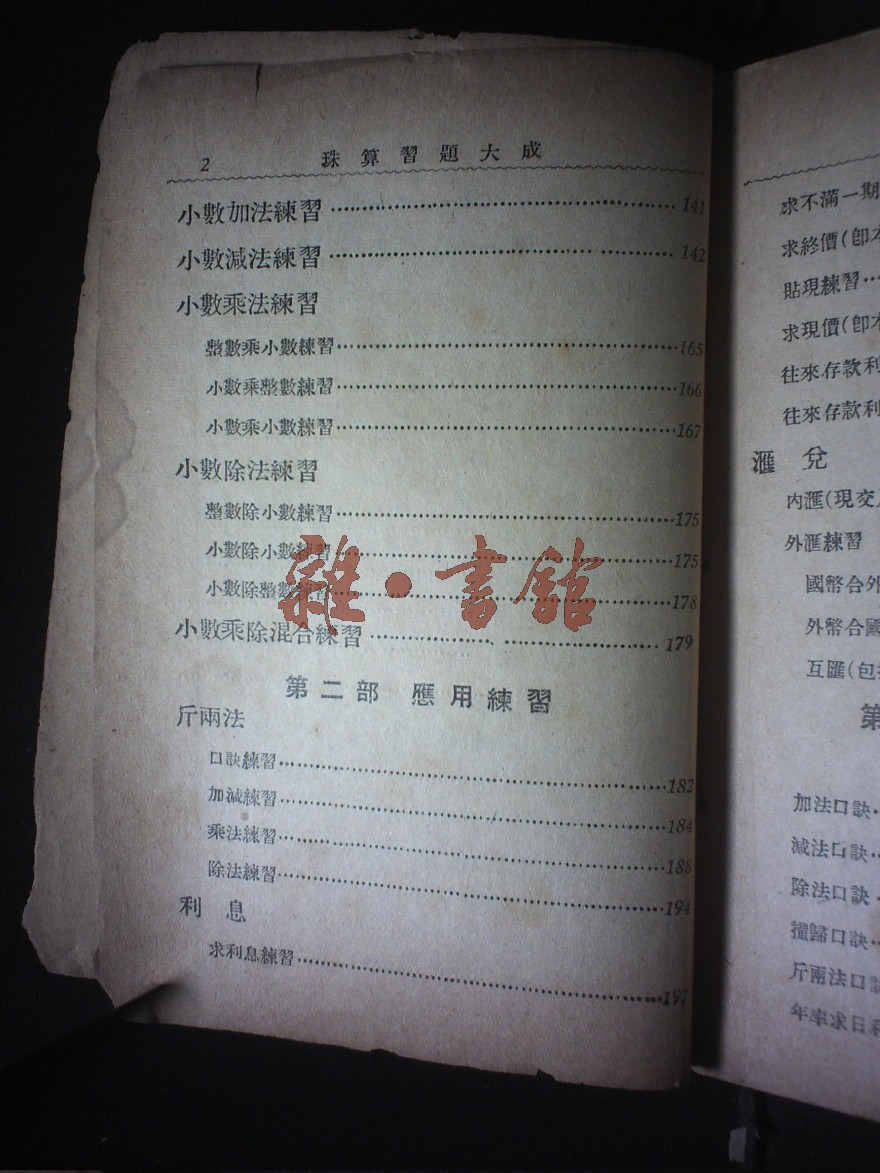 2 珠算習題大成
小數加法練習……141
小數減法練習……142
小數乘法練習
整數乘小數練習……165
小數乘整數練習……166
小數乘小數練習……167
小數除法練習
整數除小數練習……175
小數除小數練習……175
小數除整數練習……178
小數乘除混合練習……179
第二部 應用練習
斤兩法
口訣練習……182
加減練習……184
乘法練習……188
除法練習……194
利息
求利息練習……197
雜·書館
求不滿一期
求終價(卽本
貼現練習…
求現價(卽本
往來存款利
往來存款利
滙兌
內滙(現交
外滙練習
國幣合外
外幣合國
互匯(包
第
加法口訣
減法口訣
除法口訣
撞歸口訣
斤兩法口訣
年率求日利